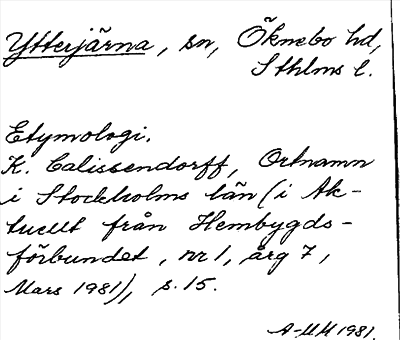 Ytterjärna, sn, Öknebo hd,
Sthlms l.
Etymologi.
K. Calissendorff, Ortnamn
i Stockholms län (i Ak-
tuellt från Hembygds-
förbundet, nr 1, årg 7,
Mars 1981), s. 15.
A-MM 1981.